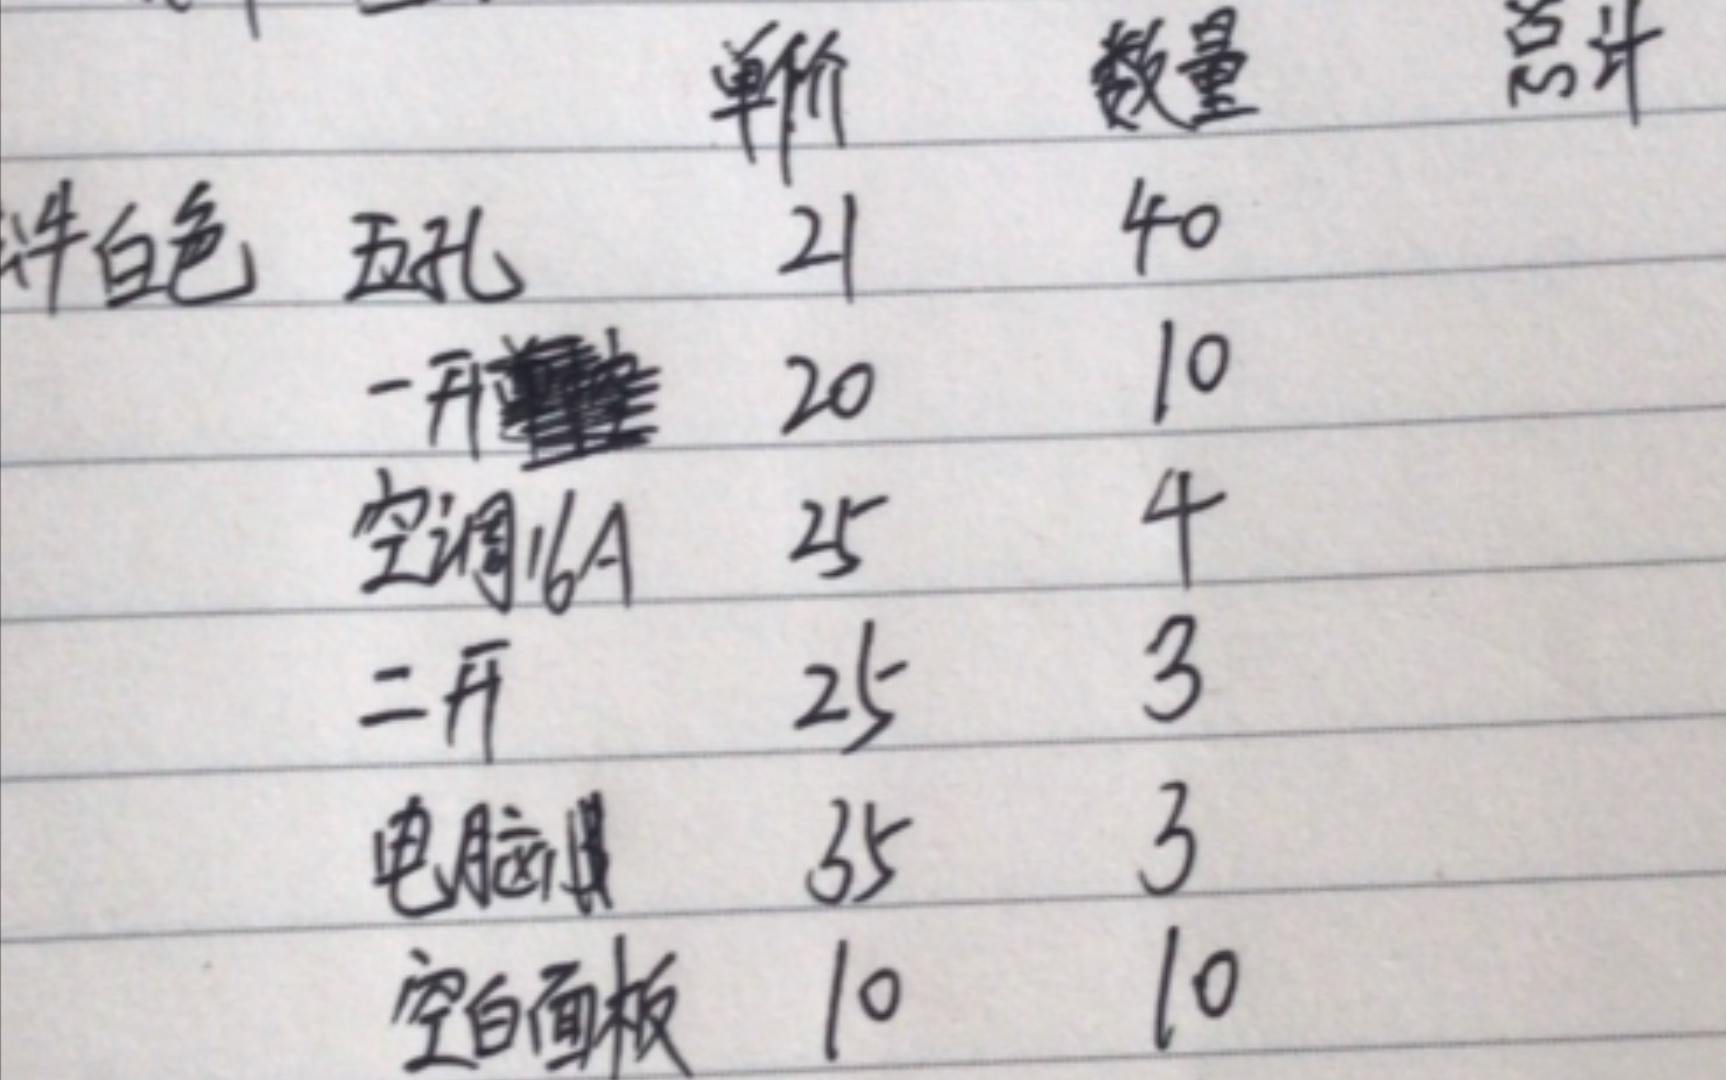 单价 数量 总计
件白色 五孔 21 40
一开 20 10
空调16A 25 4
二开 25 3
电脑 35 3
空白面板 10 10